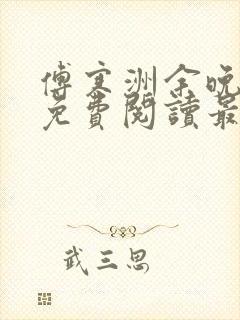 傅寒洲余晚
免費閱讀最
武三思